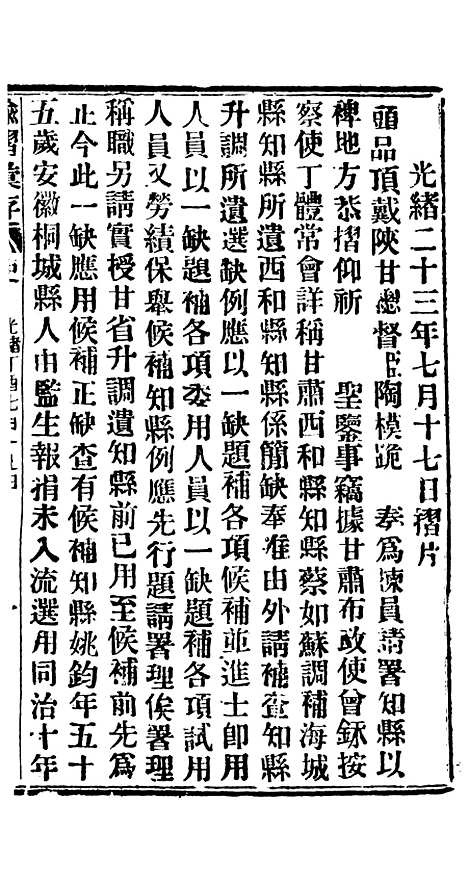 光緒二十三年七月十七日摺片
頭品頂戴陝甘總督臣陶模跪　奏爲揀員請署知縣以
裨地方恭摺仰祈　聖鑒事竊據甘肅布政使曾鉌按
察使丁體常會詳稱甘肅西和縣知縣蔡如蘇調補海城
縣知縣所遺西和縣係簡缺奉准由外請補查知縣
升調所遺選缺例應以一缺題補各項候補並進士卽用
人員以一缺題補各項委用人員以一缺題補各項試用
人員又勞績保舉候補知縣例應先行題請署理俟署理
稱職另請實授甘省升調遺知縣前已用至候補前先爲
止今此一缺應用候補正缺查有候補知縣姚鈞年五十
五歲安徽桐城縣人由監生報捐未入流選用同治十年
諭摺彙存
光緒丁酉七月